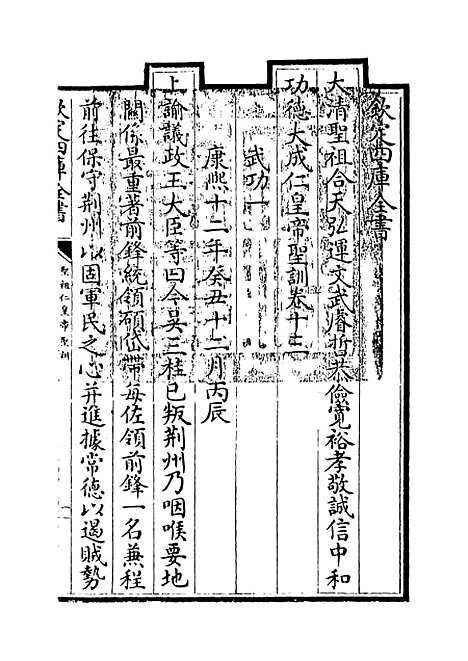 欽定四庫全書
大清聖祖合天弘運文武睿哲恭儉寬裕孝敬誠信中和
功德大成仁皇帝聖訓卷十三
武功一
康熙十二年癸丑十二月丙辰
上諭議政王大臣等曰今吳三桂已叛荆州乃咽喉要地
關係最重著前鋒統領碩岱帶每佐領前鋒一名兼程
前往保守荆州以固軍民之心并進據常德以遏賊勢
欽定四庫全書
聖祖仁皇帝聖訓
一